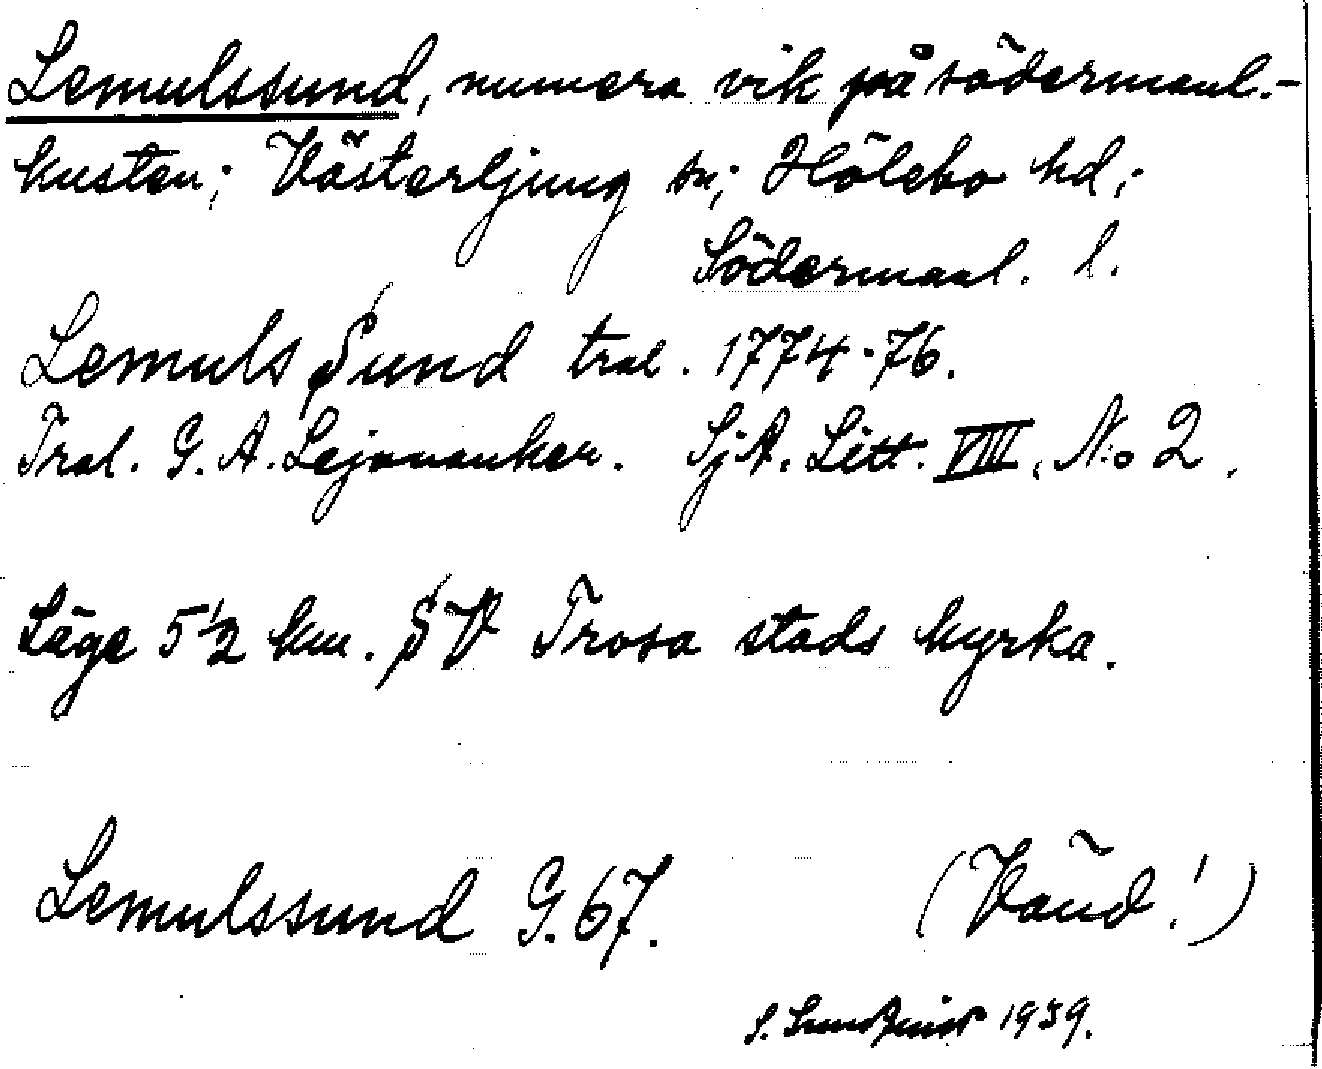 Lemulssund, numera vik på södermanl.-
kusten; Västerljung sn; Hölebo hd;
Södermanl. l.
Lemuls Sund tral. 1774-76.
Tral. G. A. Lejonanker. SjA. Litt. VIII, No 2.
Läge 5½ km. SV Trosa stads kyrka.
Lemulssund G. 67. (Vänd!)
S. 1939.